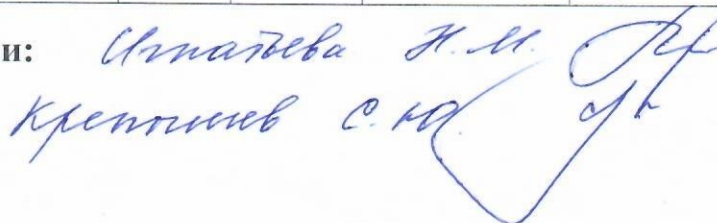 и: Игнатьева Н.М.
Крепышев С.Ю.